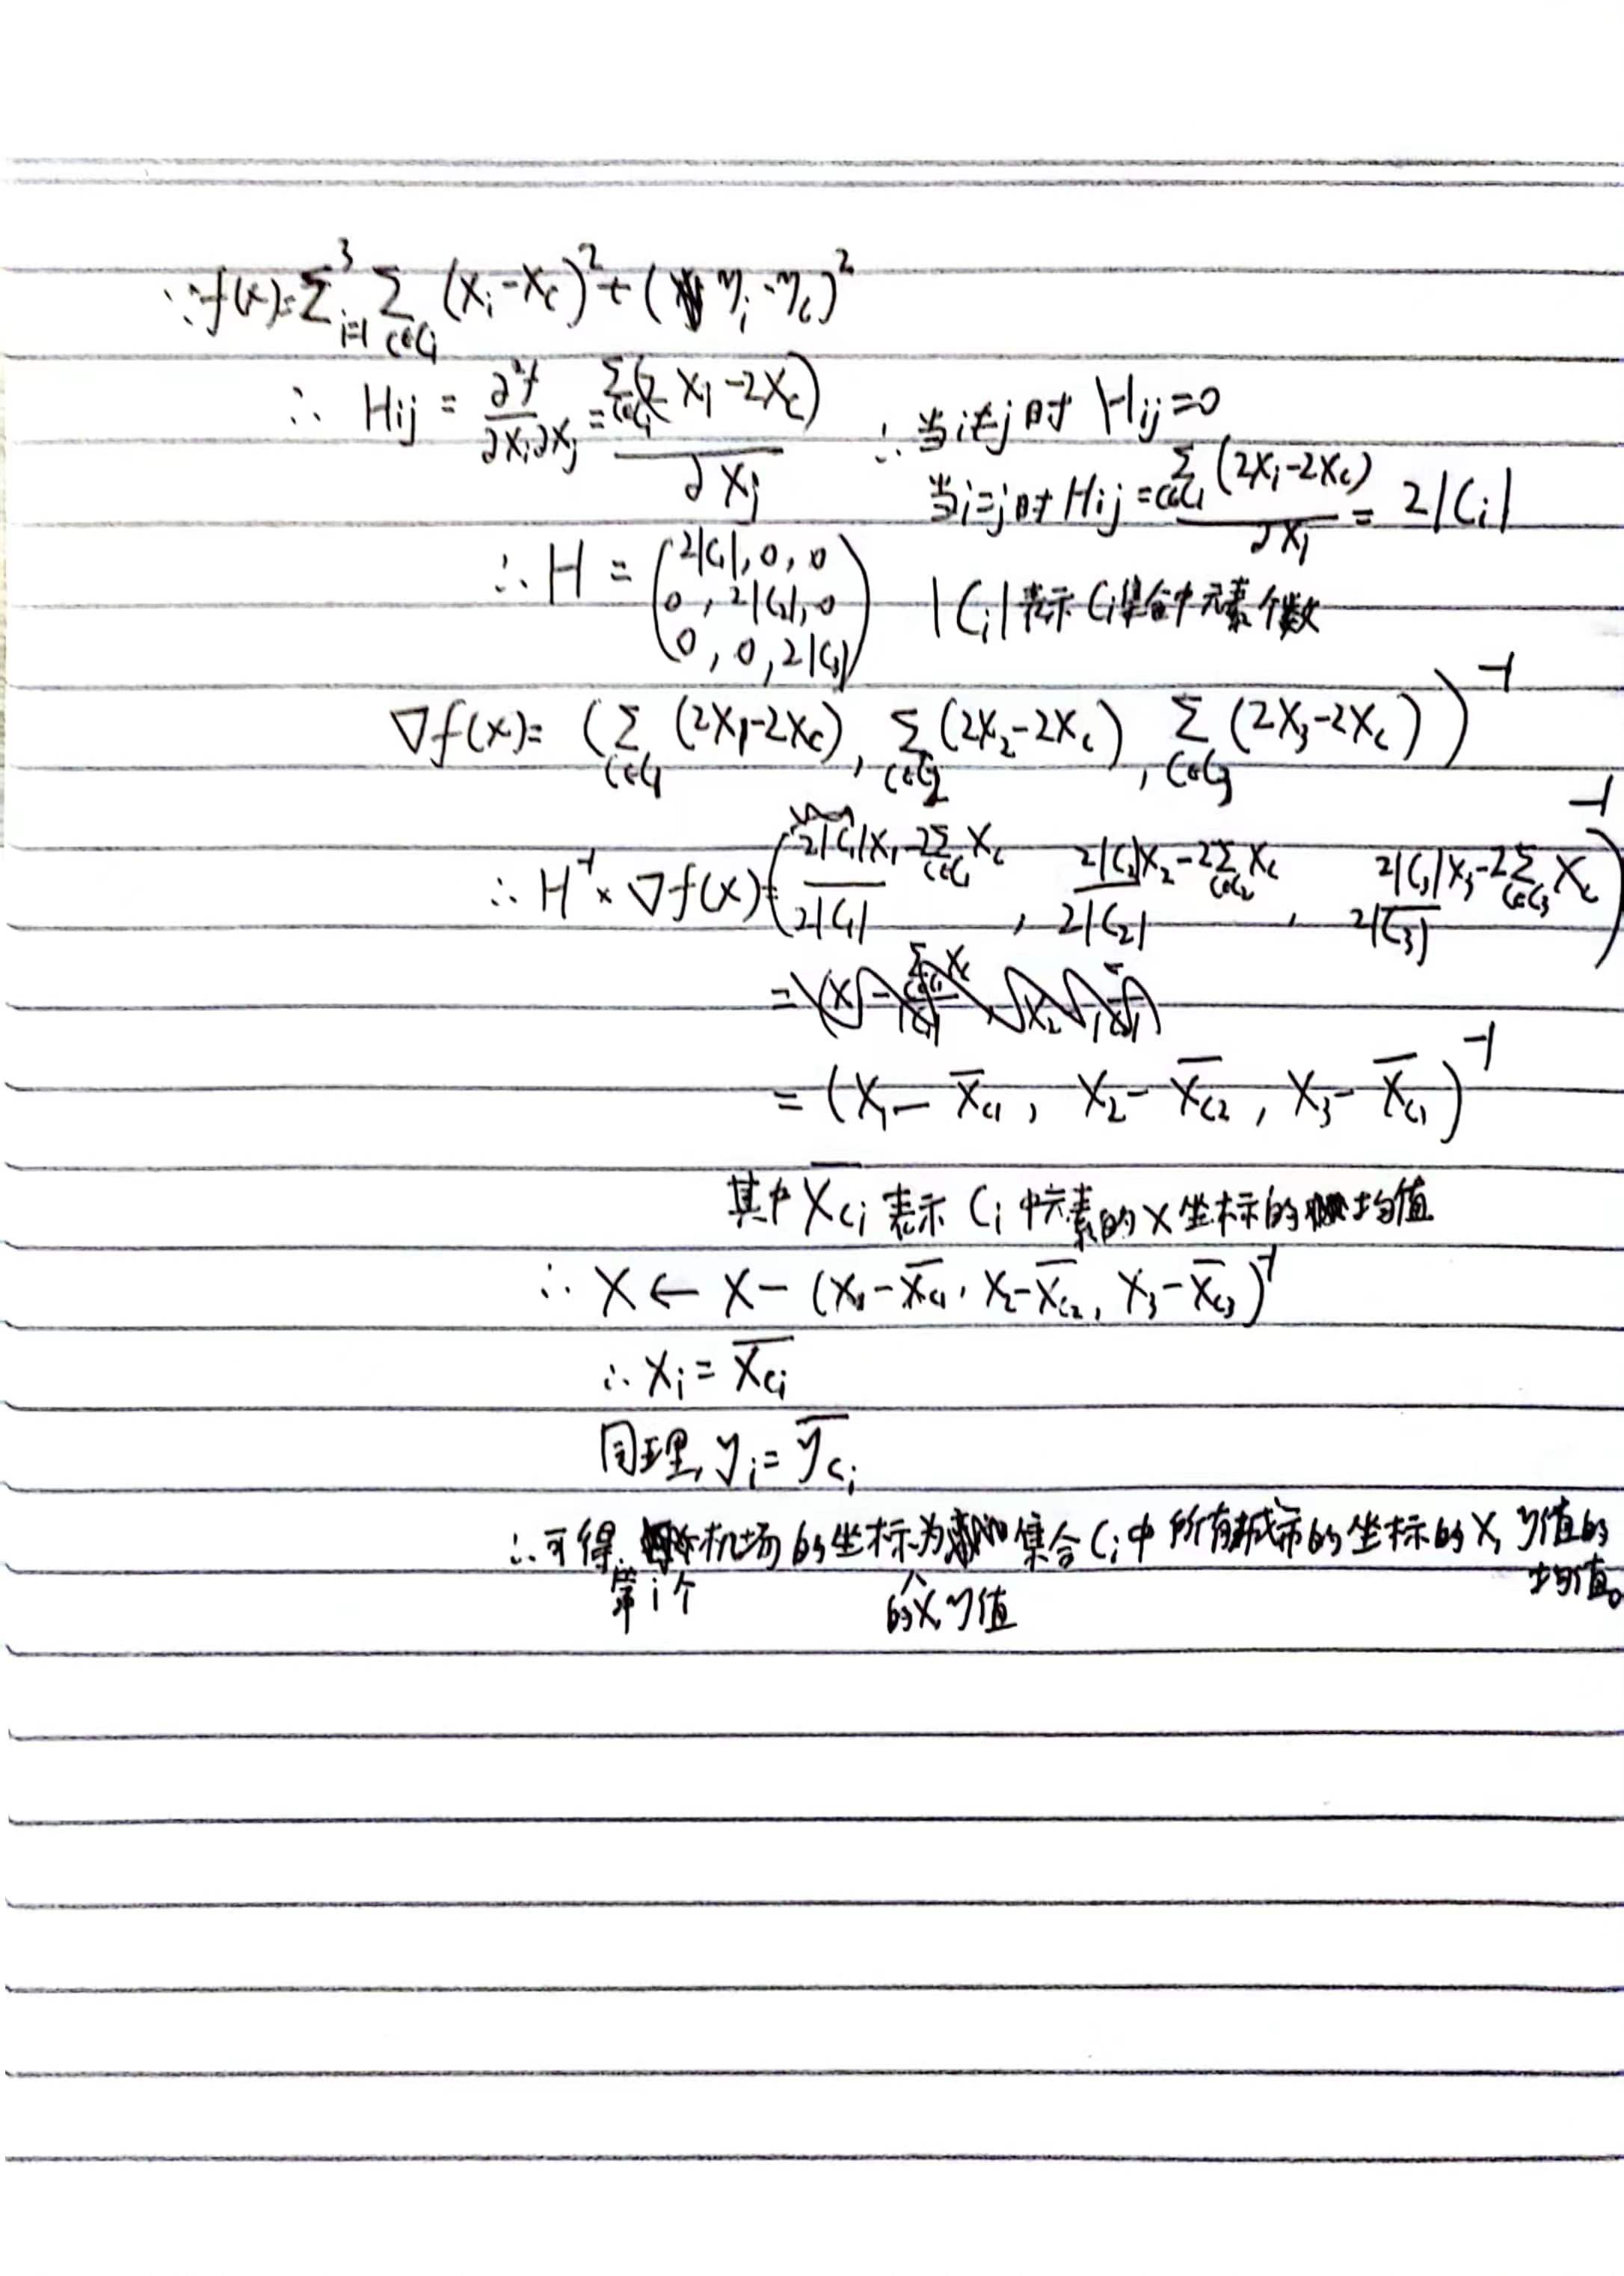 ∵ f(x) = Σ_{i=1}^{3} Σ_{c∈Ci} (xi - xc)² + (yi - yc)²
∴ Hij = ∂²f / ∂xi∂xj = Σ_{c∈Ci} (2xi - 2xc) / ∂xj ∴ 当i≠j时 Hij = 0
当i=j时 Hij = Σ_{c∈Ci} (2xi - 2xc) / ∂xi = 2|Ci|
∴ H = (2|C1|, 0, 0
0, 2|C2|, 0
0, 0, 2|C3|) |Ci| 表示 Ci集合中元素个数
∇f(x) = (Σ_{c∈C1} (2x1 - 2xc), Σ_{c∈C2} (2x2 - 2xc), Σ_{c∈C3} (2x3 - 2xc))^{-1}
∴ H^{-1} × ∇f(x) = (2|C1|x1 - 2Σ_{c∈C1} xc / 2|C1|, 2|C2|x2 - 2Σ_{c∈C2} xc / 2|C2|, 2|C3|x3 - 2Σ_{c∈C3} xc / 2|C3|)^{-1}
= (x1 - x̄c1, x2 - x̄c2, x3 - x̄c1)^{-1}
其中 x̄ci 表示 Ci 中元素的 x 坐标的均值
∴ x ← x - (x1 - x̄c1, x2 - x̄c2, x3 - x̄c3)^{-1}
∴ xi = x̄ci
同理, yi = ȳci
∴ 可得 第i个机场的坐标的x,y值为集合Ci中所有城市的坐标的x, y值的均值。